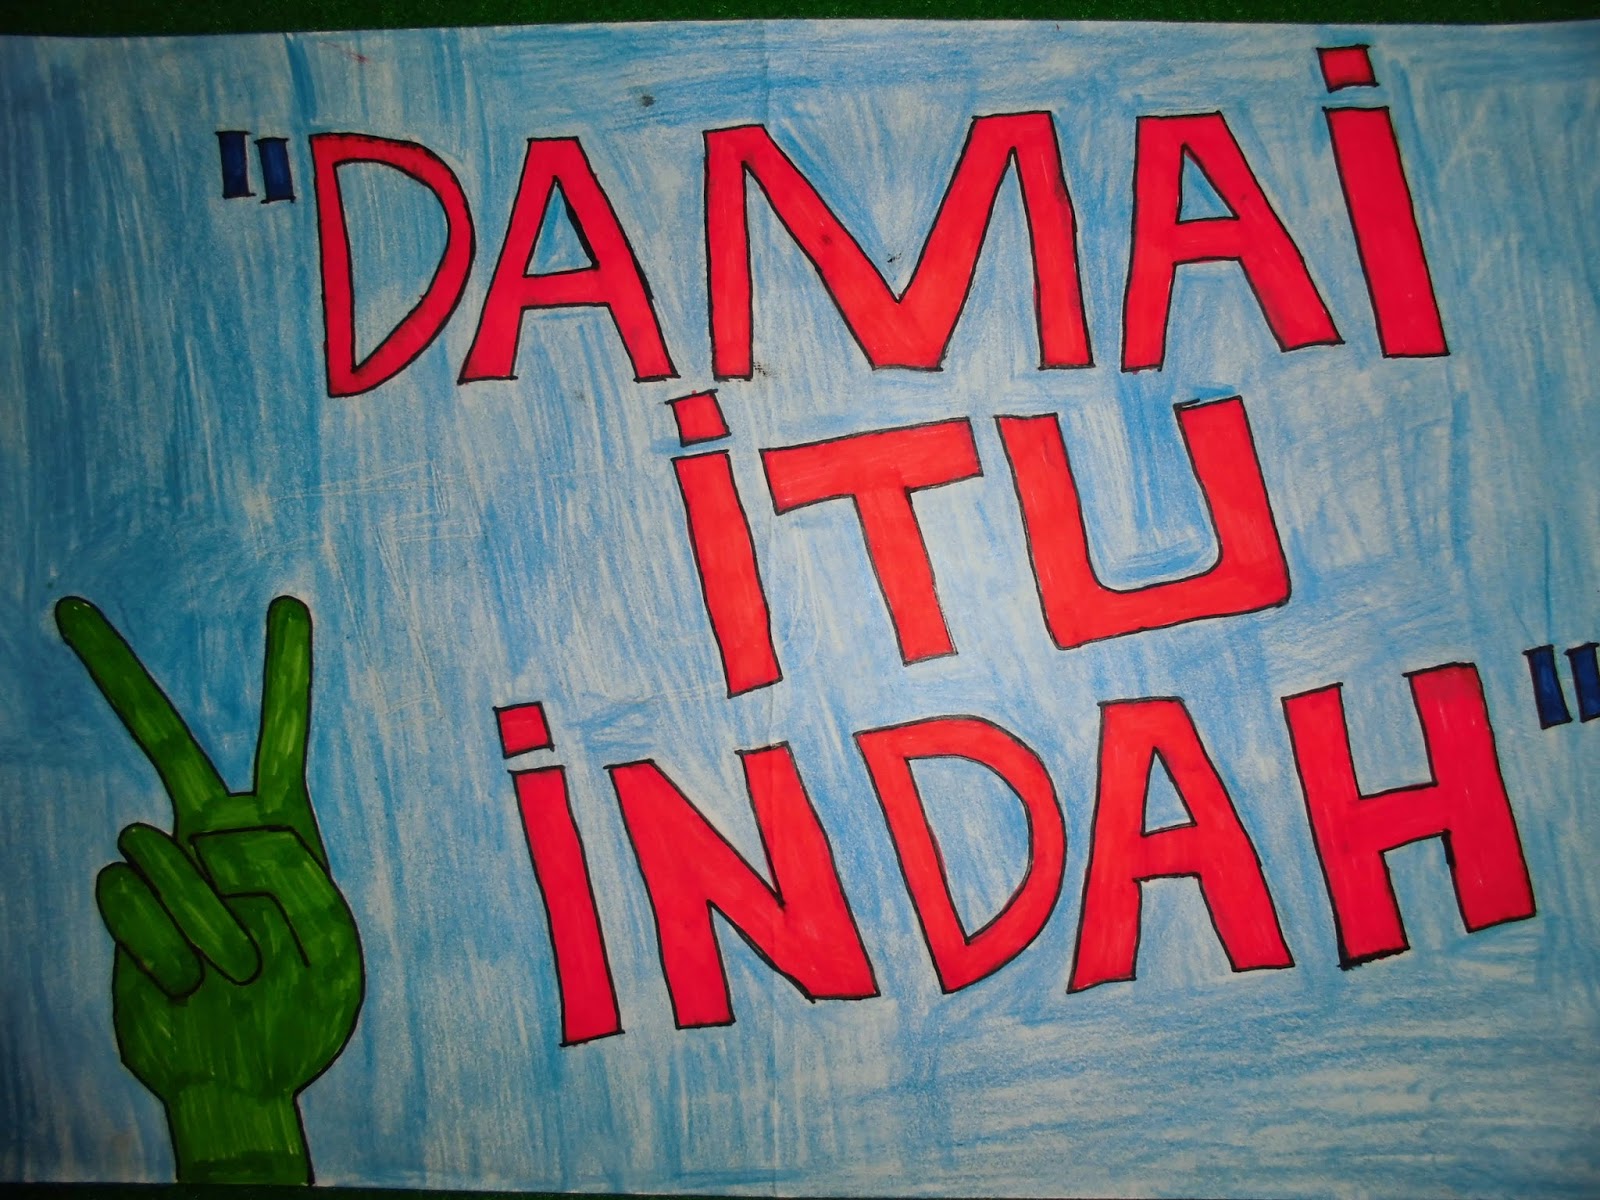 "DAMAi
iTU
iNDAH"